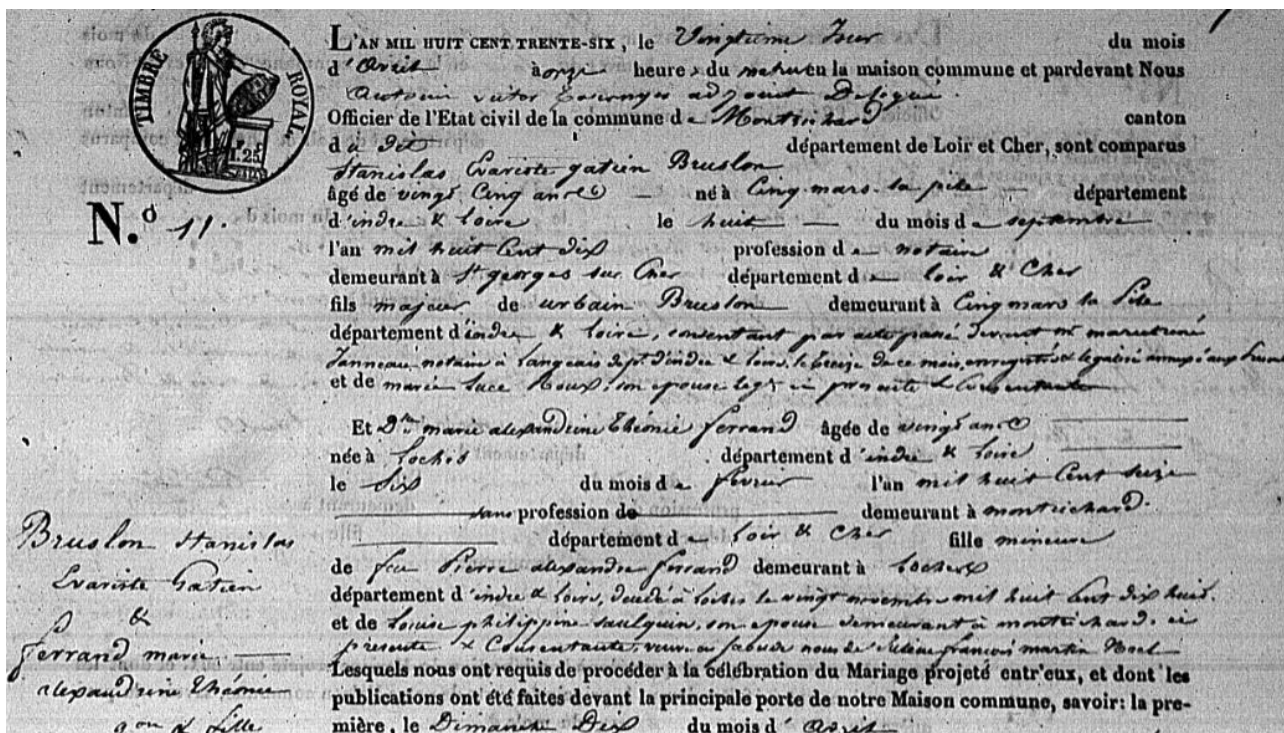 TIMBRE ROYAL.
1.25
N.º 11.
L'AN MIL HUIT CENT TRENTE-SIX, le Vingtieme Jour du mois
d'Avril à onze heures du matin en la maison commune et pardevant Nous
adjoint Délégué
Officier de l'Etat civil de la commune de Montrichard canton
du dit département de Loir et Cher, sont comparus
Stanislas Evariste gatien Bruslon
âgé de vingt Cinq ans né à Cinq-mars-la pile département
d'indre & Loire le huit du mois de septembre
l'an mil huit Cent dix profession de notaire
demeurant à St georges sur Cher département de loir & Cher
fils majeur de urbain Bruslon demeurant à Cinq mars la Pile
département d'indre & Loire, consentant par acte passé devant me
Janneau notaire à Langeais dept. d'indre & loire, le treize de ce mois, enregistré & légalisé annexé aux
et de marie Luce Roux son epouse ici presente & Consentante
Et Dlle marie alexandrine Théonie ferrand âgée de vingt ans
née à Loches département d'indre & Loire
le Six du mois de fevrier l'an mil huit Cent seize
sans profession de demeurant à montrichard.
département de Loir & Cher fille mineure
de feu Pierre alexandre ferrand demeurant à Loches
département d'indre & Loire, décédé à loches le vingt novembre mil huit Cent dix huit.
et de Louise philippine saulquin, son epouse demeurant à montrichard. ici
presente & Consentante, veuve françois martin
Lesquels nous ont requis de procéder à la célébration du Mariage projeté entr'eux, et dont les
publications ont été faites devant la principale porte de notre Maison commune, savoir: la pre-
mière, le Dimanche Dix du mois d'Avril
Bruslon Stanislas
Evariste Gatien
&
ferrand marie
alexandrine Théonie
gon & fille